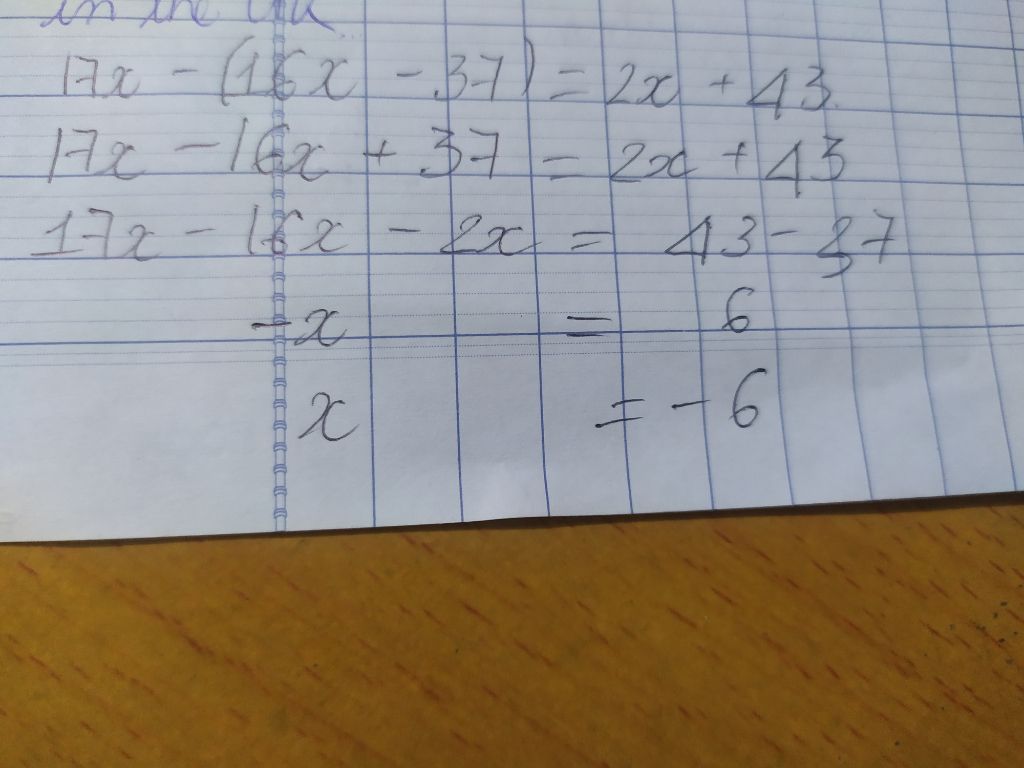 in the
17x - (16x - 37) = 2x + 43
17x - 16x + 37 = 2x + 43
17x - 16x - 2x = 43 - 37
-x = 6
x = - 6